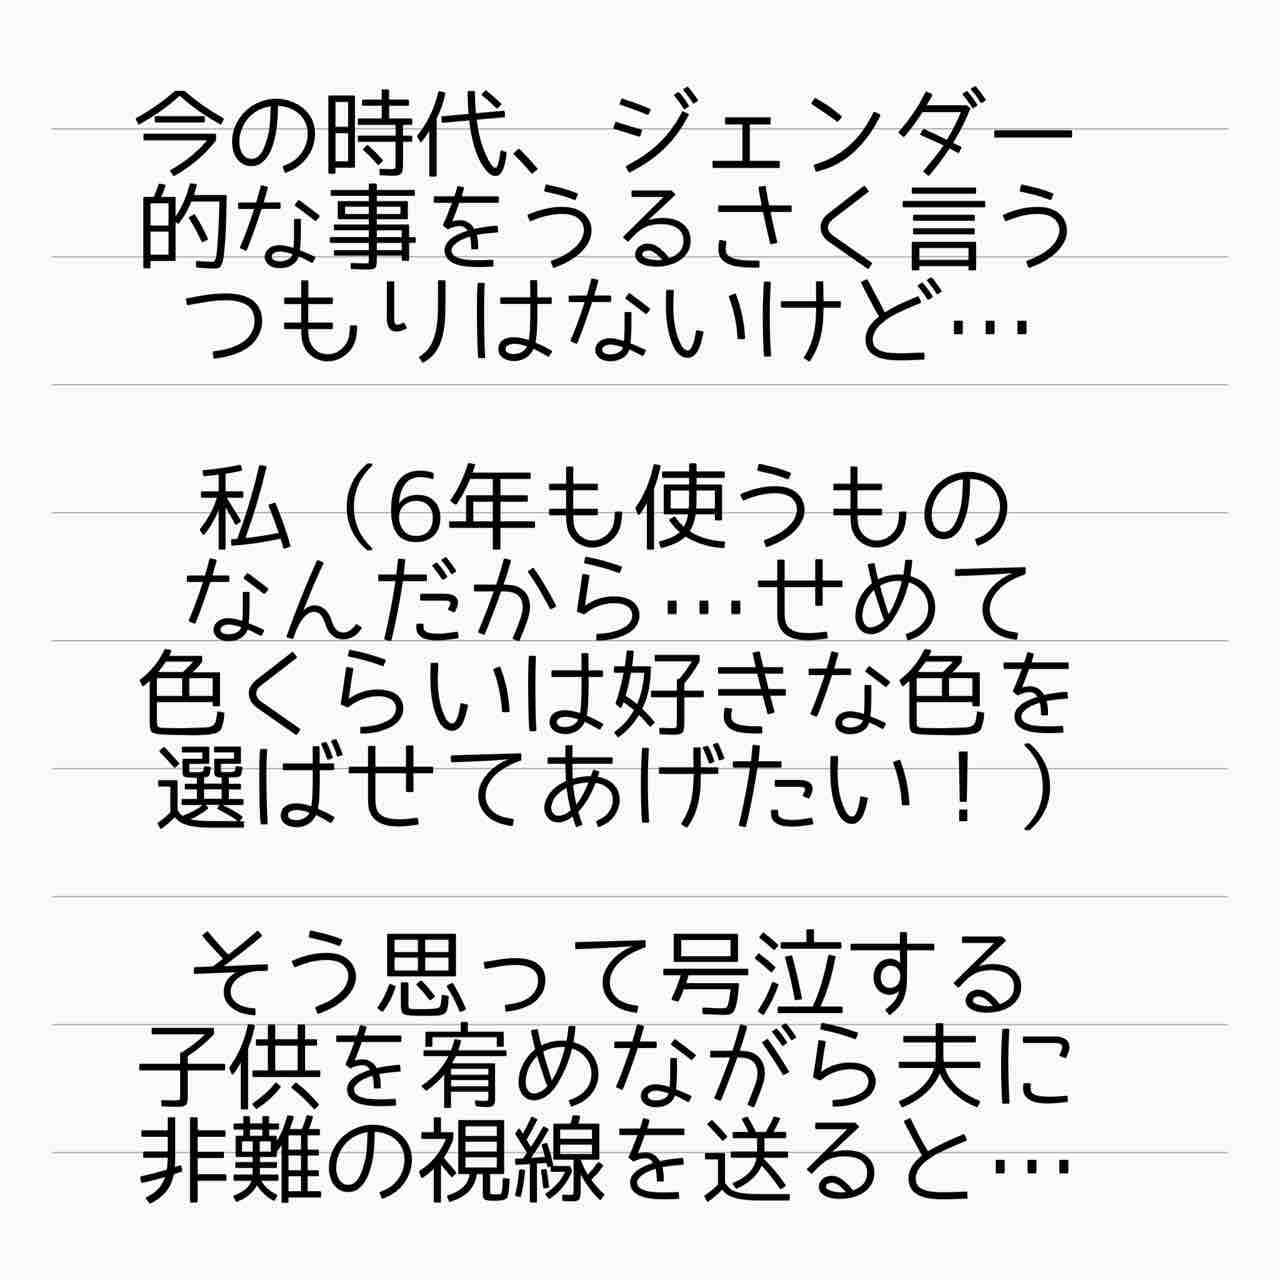 今の時代、ジェンダー
的な事をうるさく言う
つもりはないけど…
私（6年も使うもの
なんだから…せめて
色くらいは好きな色を
選ばせてあげたい！）
そう思って号泣する
子供を宥めながら夫に
非難の視線を送ると…